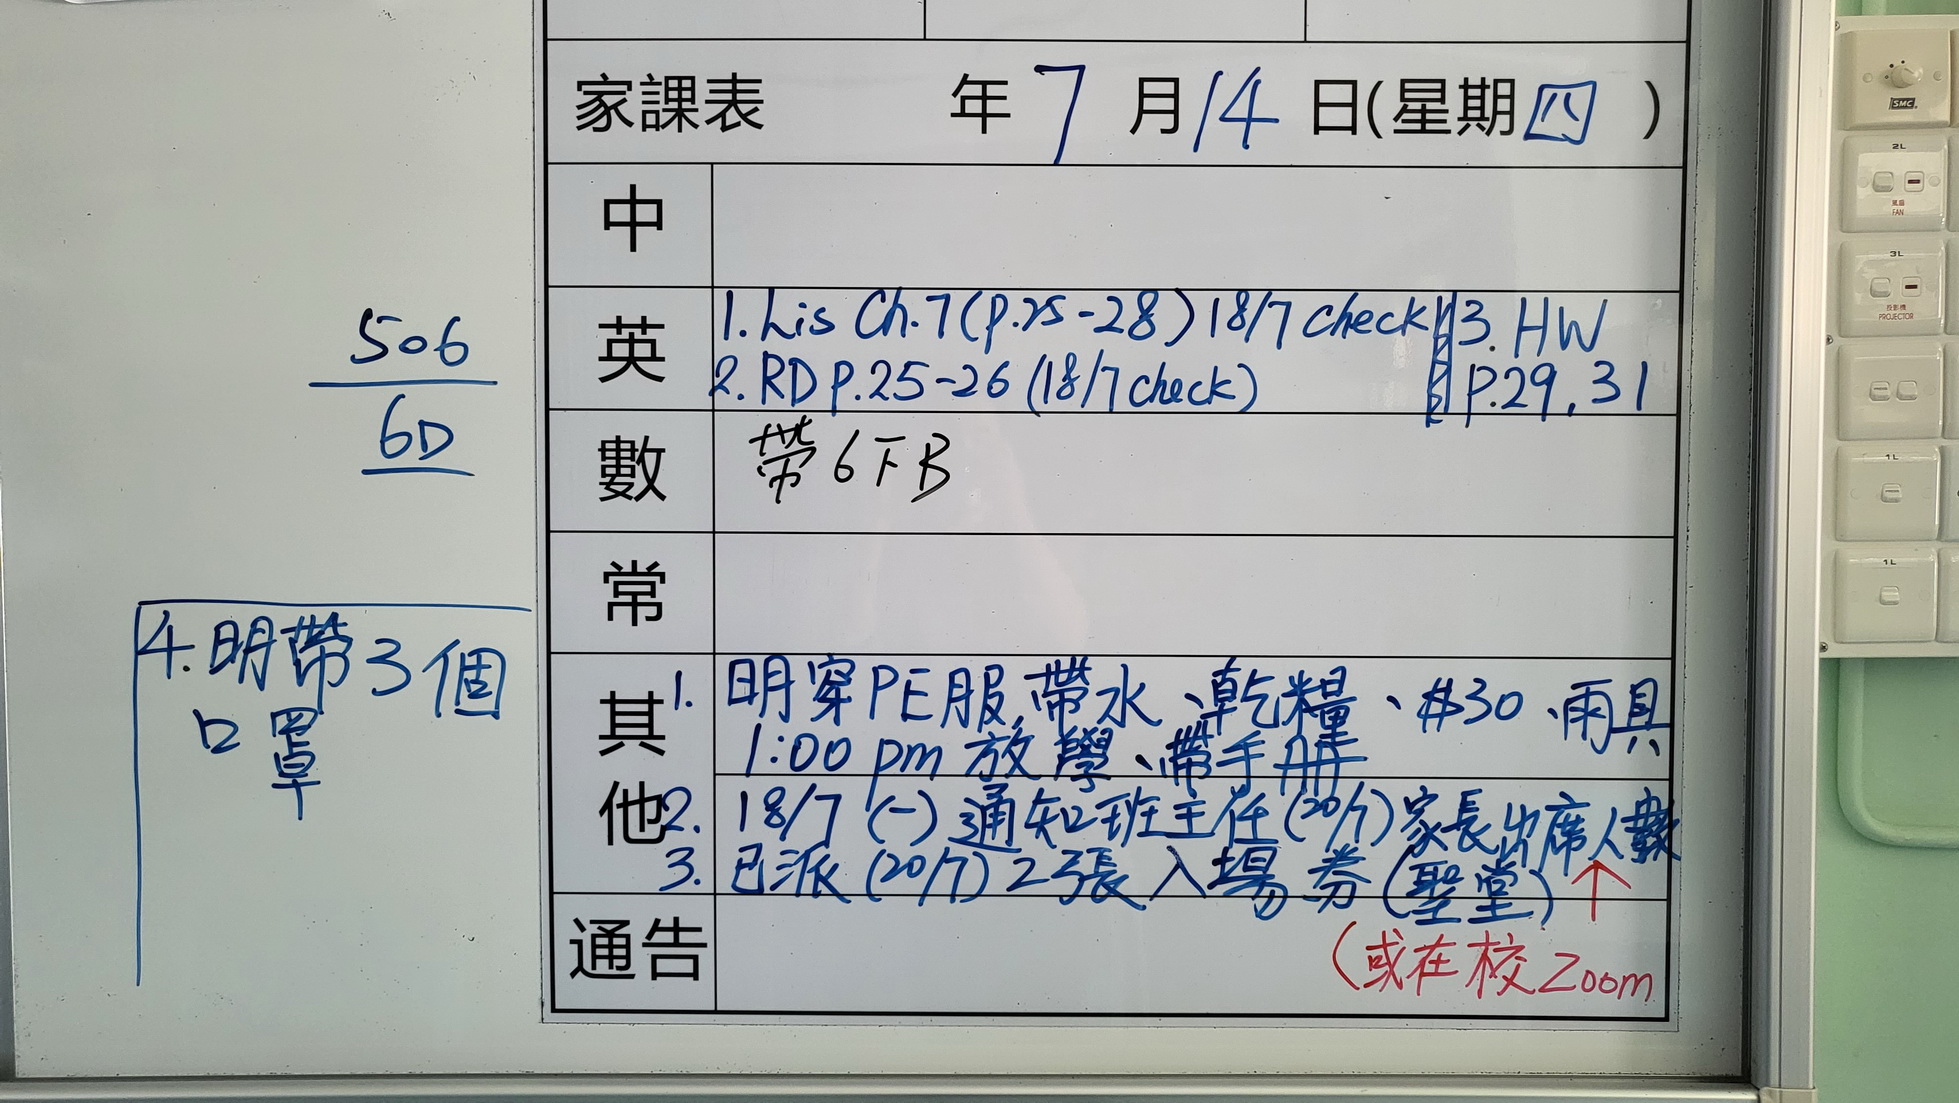 家課表 年7月14日(星期四)
中
英
1. Lis Ch.7 (p.25-28) 18/7 check
2. RD P.25-26 (18/7 check)
3. HW
P.29, 31
數
帶6下B
常
其他
1. 明穿PE服,帶水、乾糧、$30、雨具
1:00 pm 放學、帶手冊
2. 18/7 (一) 通知班主任(20/7)家長出席人數
3. 已派(20/7) 2張入場券(聖堂)
↑
(或在校Zoom
通告
506
6D
4. 明帶3個
口罩
SMC
2L
風扇
FAN
3L
投影機
PROJECTOR
1L
1L